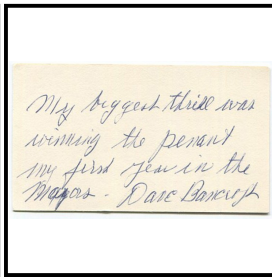 My biggest thrill was
winning the penant
my first year in the
Majors - Dave Bancroft